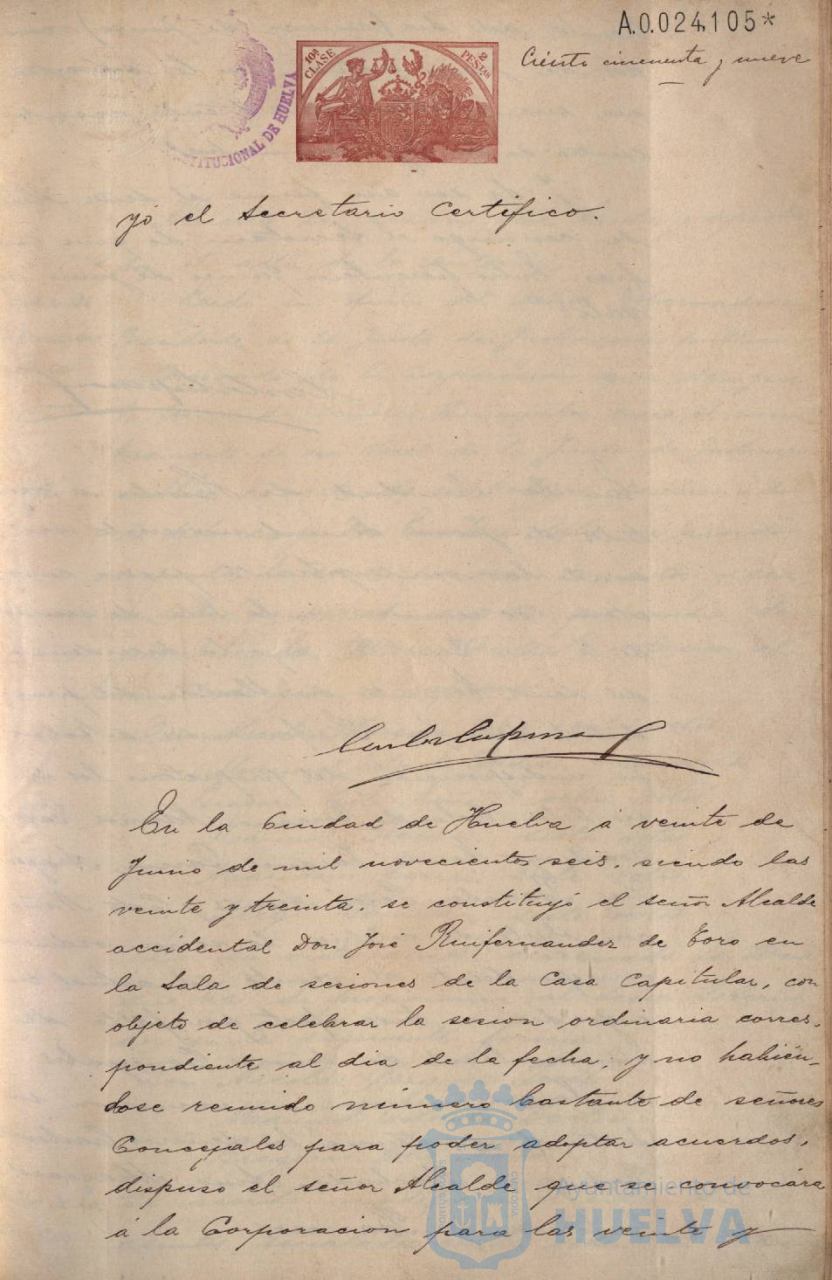 A.0.024,105*
Ciento cincuenta y nueve
10ª CLASE
2 PESTAS
CONSTITUCIONAL DE HUELVA
yó el Secretario Certifico.
En la Ciudad de Huelva á veinte de
Junio de mil novecientos seis, siendo las
veinte y treinta, se constituyó el señor Alcalde
accidental Don José Ruifernandez de Toro en
la Sala de sesiones de la Casa Capitular, con
objeto de celebrar la sesion ordinaria corres-
pondiente al dia de la fecha; y no habién-
dose reunido número bastante de señores
Concejales para poder adoptar acuerdos,
dispuso el señor Alcalde que se convocára
á la Corporacion para las veinte y
Ayuntamiento de
HUELVA